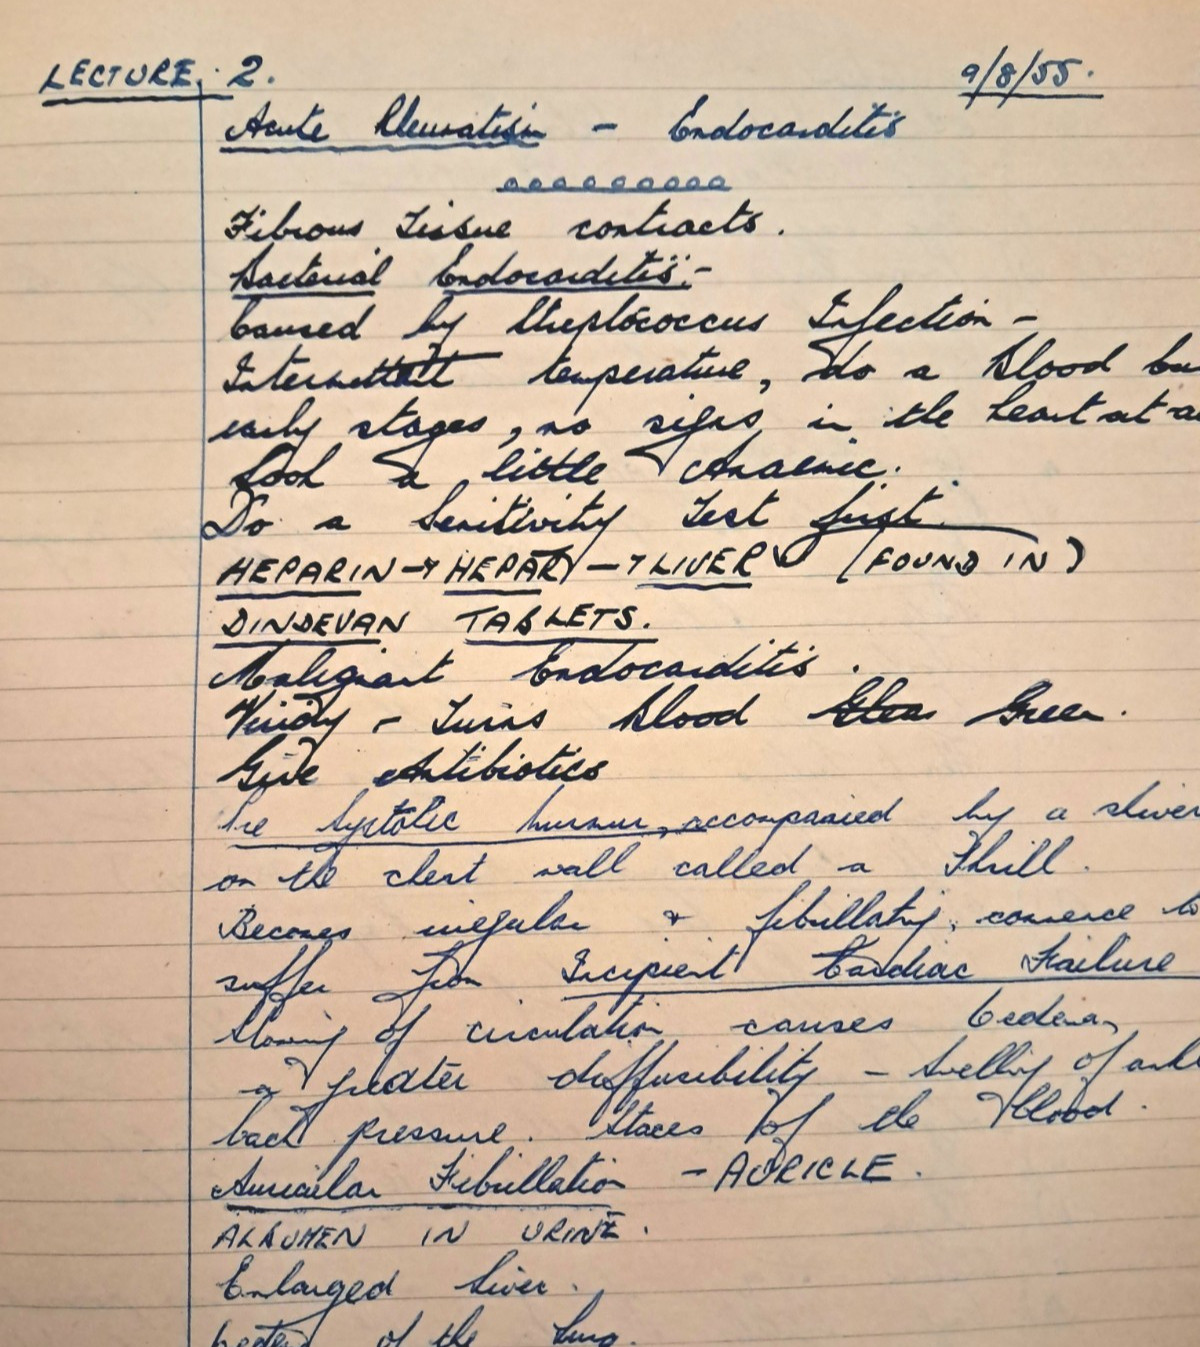 LECTURE. 2. 9/8/55.
Acute Rheumatism - Endocarditis
Fibrous Tissue contracts.
Bacterial Endocarditis:-
Caused by Streptococcus Infection -
Intermittent temperature, do a blood
early stages, no signs in the heart at
look a little Anaemic.
Do a Sensitivity Test first.
HEPARIN → HEPAR → LIVER (FOUND IN)
DINDEVAN TABLETS.
Malignant Endocarditis.
- Turns blood Green.
Give Antibiotics
Pre Systolic murmur, accompanied by a
on the chest wall called a Thrill.
Becomes irregular & fibrillating, commence to
suffer from Incipient Cardiac Failure
Slowing of circulation causes Oedema,
a greater diffusibility - Swelling of
back pressure. Stases of the blood.
Auricular Fibrillation - AURICLE.
ALBUMEN IN URINE.
Enlarged Liver.
of the Lung.